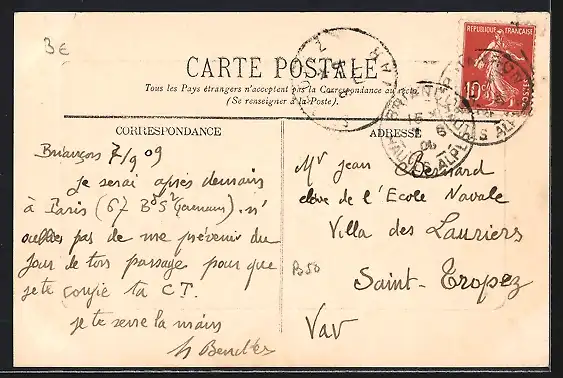 3€
CARTE POSTALE
Tous les Pays étrangers n'acceptent pas la Correspondance au recto
(Se renseigner à la Poste).
REPUBLIQUE FRANÇAISE
10c
POSTES
CORRESPONDANCE
Briançon 7/9 09
Je serai après demain
à Paris (67 Bd St Germain). n'
oublies pas de me prévenir du
jour de ton passage pour que
je te confie ta C.T.
je te serre la main
ADRESSE
Mr Jean Bernard
élève de l'Ecole Navale
Villa des Lauriers
B50
Saint-Tropez
Var